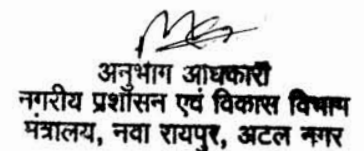 अनुभाग अधिकारी
नगरीय प्रशासन एवं विकास विभाग
मंत्रालय, नवा रायपुर, अटल नगर